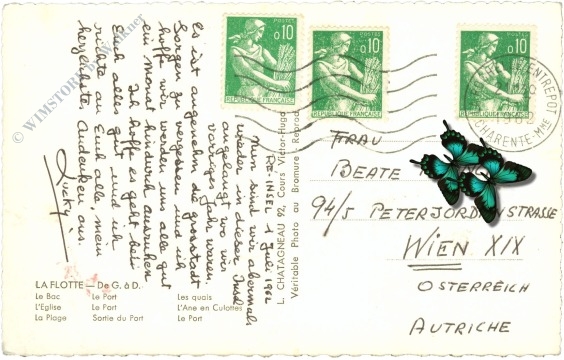 POSTES
0,10
REPUBLIQUE FRANÇAISE
POSTES
0,10
REPUBLIQUE FRANÇAISE
POSTES
0,10
REPUBLIQUE FRANÇAISE
ENTREPOT
CHARENTE-Mme
© WIMSTORE by Wikner
RÉ INSEL 1 Juli 1962
Nun sind wir abermals
wieder in dieser Insel
angelangt wo wir
voriges Jahr waren.
Es ist angenehm die grosstadt
Sorgen zu vergessen und ich
hoffe wir werden uns alle gut
ein monat hindurch ausruhen
Ich hoffe es geht bei
Euch alles gut und ich
richte an Euch alle, mein
herzlichste Andenken aus.
Lucky
L. CHATAGNEAU 76 Cours Victor-Hugo
Véritable Photo au Bromure - Reprod.
FRAU
BEATE
94/5 PETERJORDENSTRASSE
WIEN XIX
OSTERREICH
AUTRICHE
LA FLOTTE — De G. à D.
Le Bac Le Port Les quais
L'Eglise Le Port L'Ane en Culottes
La Plage Sortie du Port Le Port